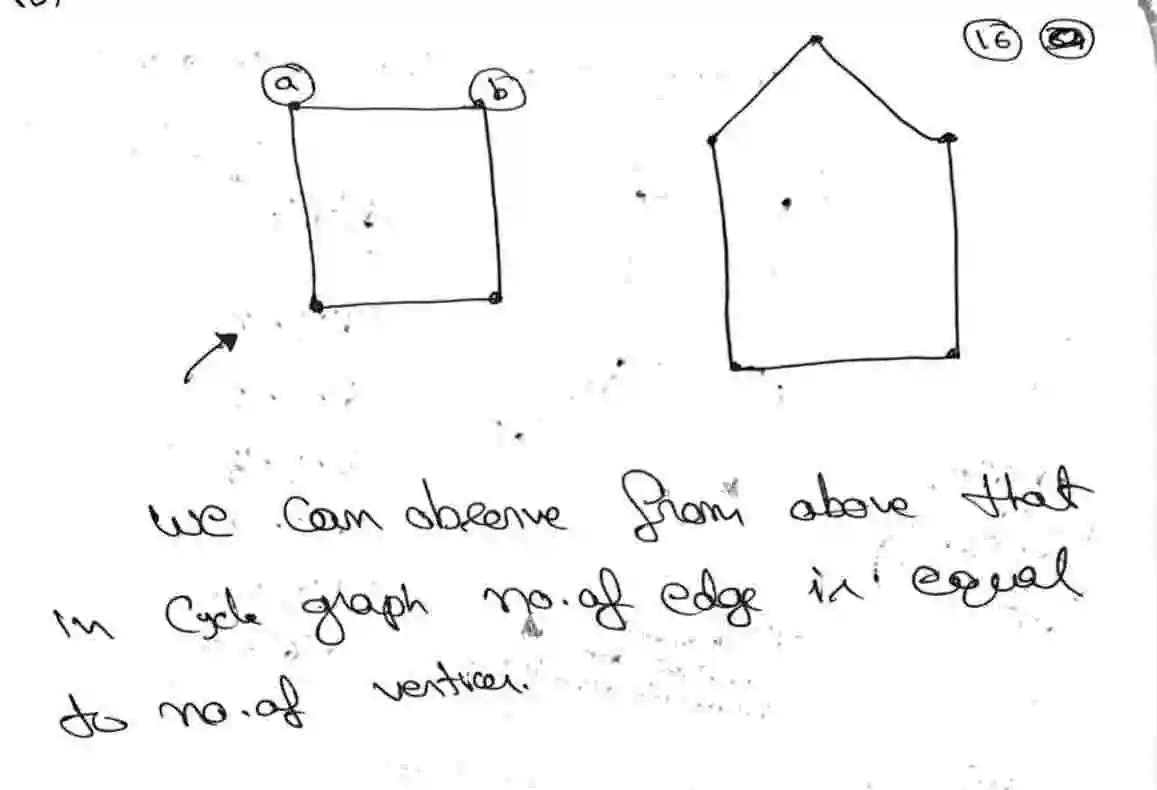 16
a b
we can observe from above that
in Cycle graph no. of edge is equal
to no. of vertices.